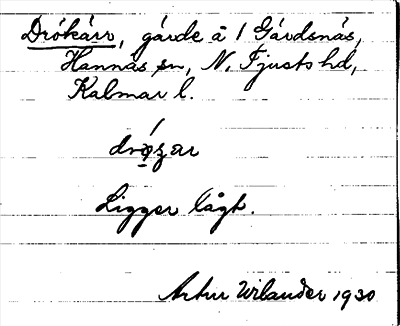 Drókärr, gärde å 1 Gärdsnäs,
Hannäs sn, N. Tjusts hd,
Kalmar l.
Ligger lågt.
Artur Wilander 1930